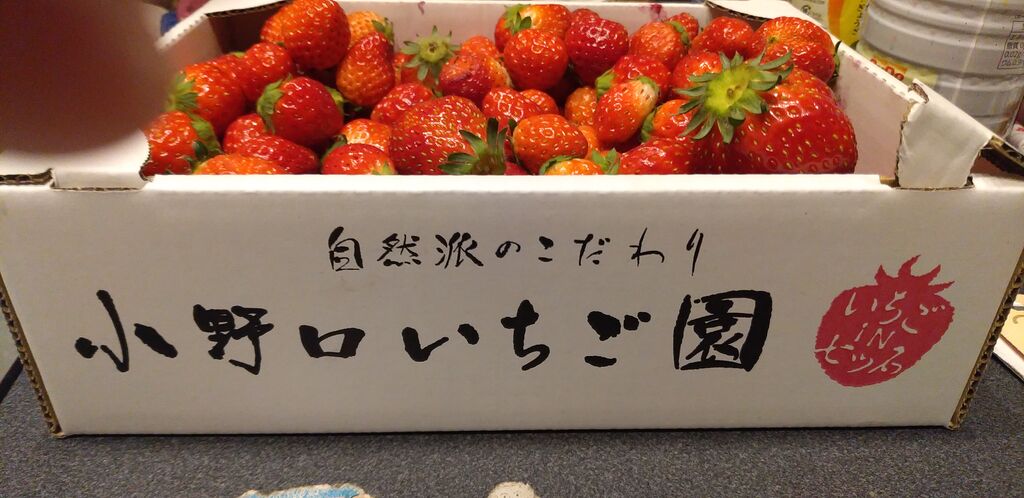 自然派のこだわり
小野口いちご園
いちご
iN
七ツ石